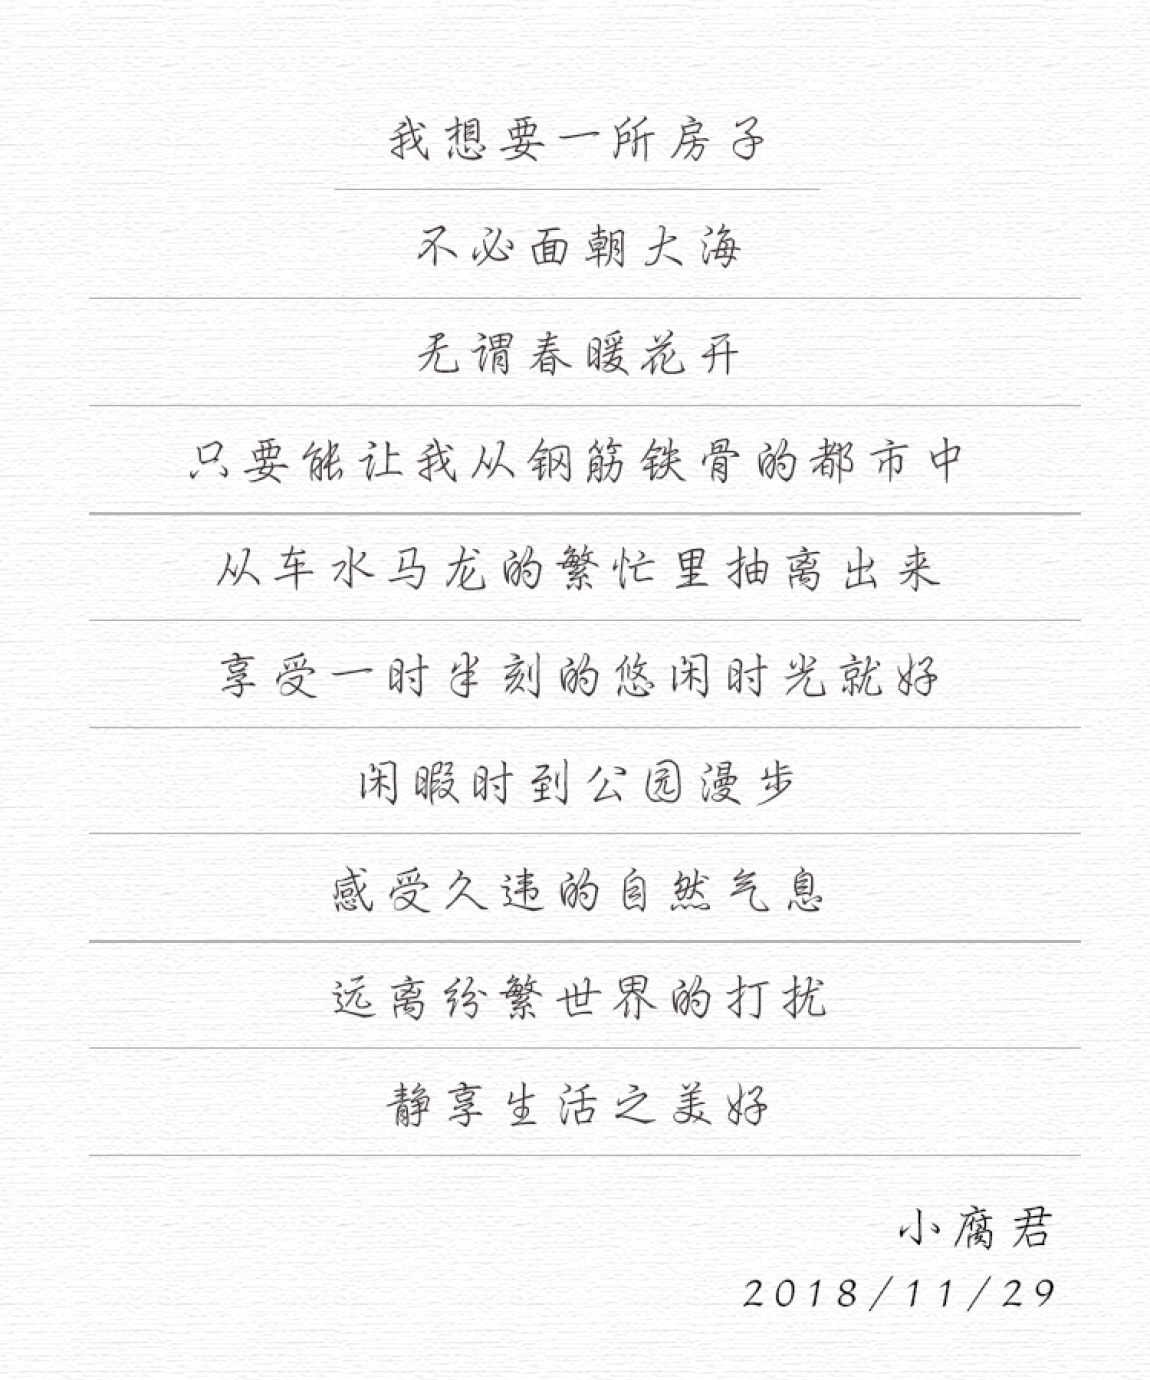 我想要一所房子
不必面朝大海
无谓春暖花开
只要能让我从钢筋铁骨的都市中
从车水马龙的繁忙里抽离出来
享受一时半刻的悠闲时光就好
闲暇时到公园漫步
感受久违的自然气息
远离纷繁世界的打扰
静享生活之美好
小腐君
2018/11/29